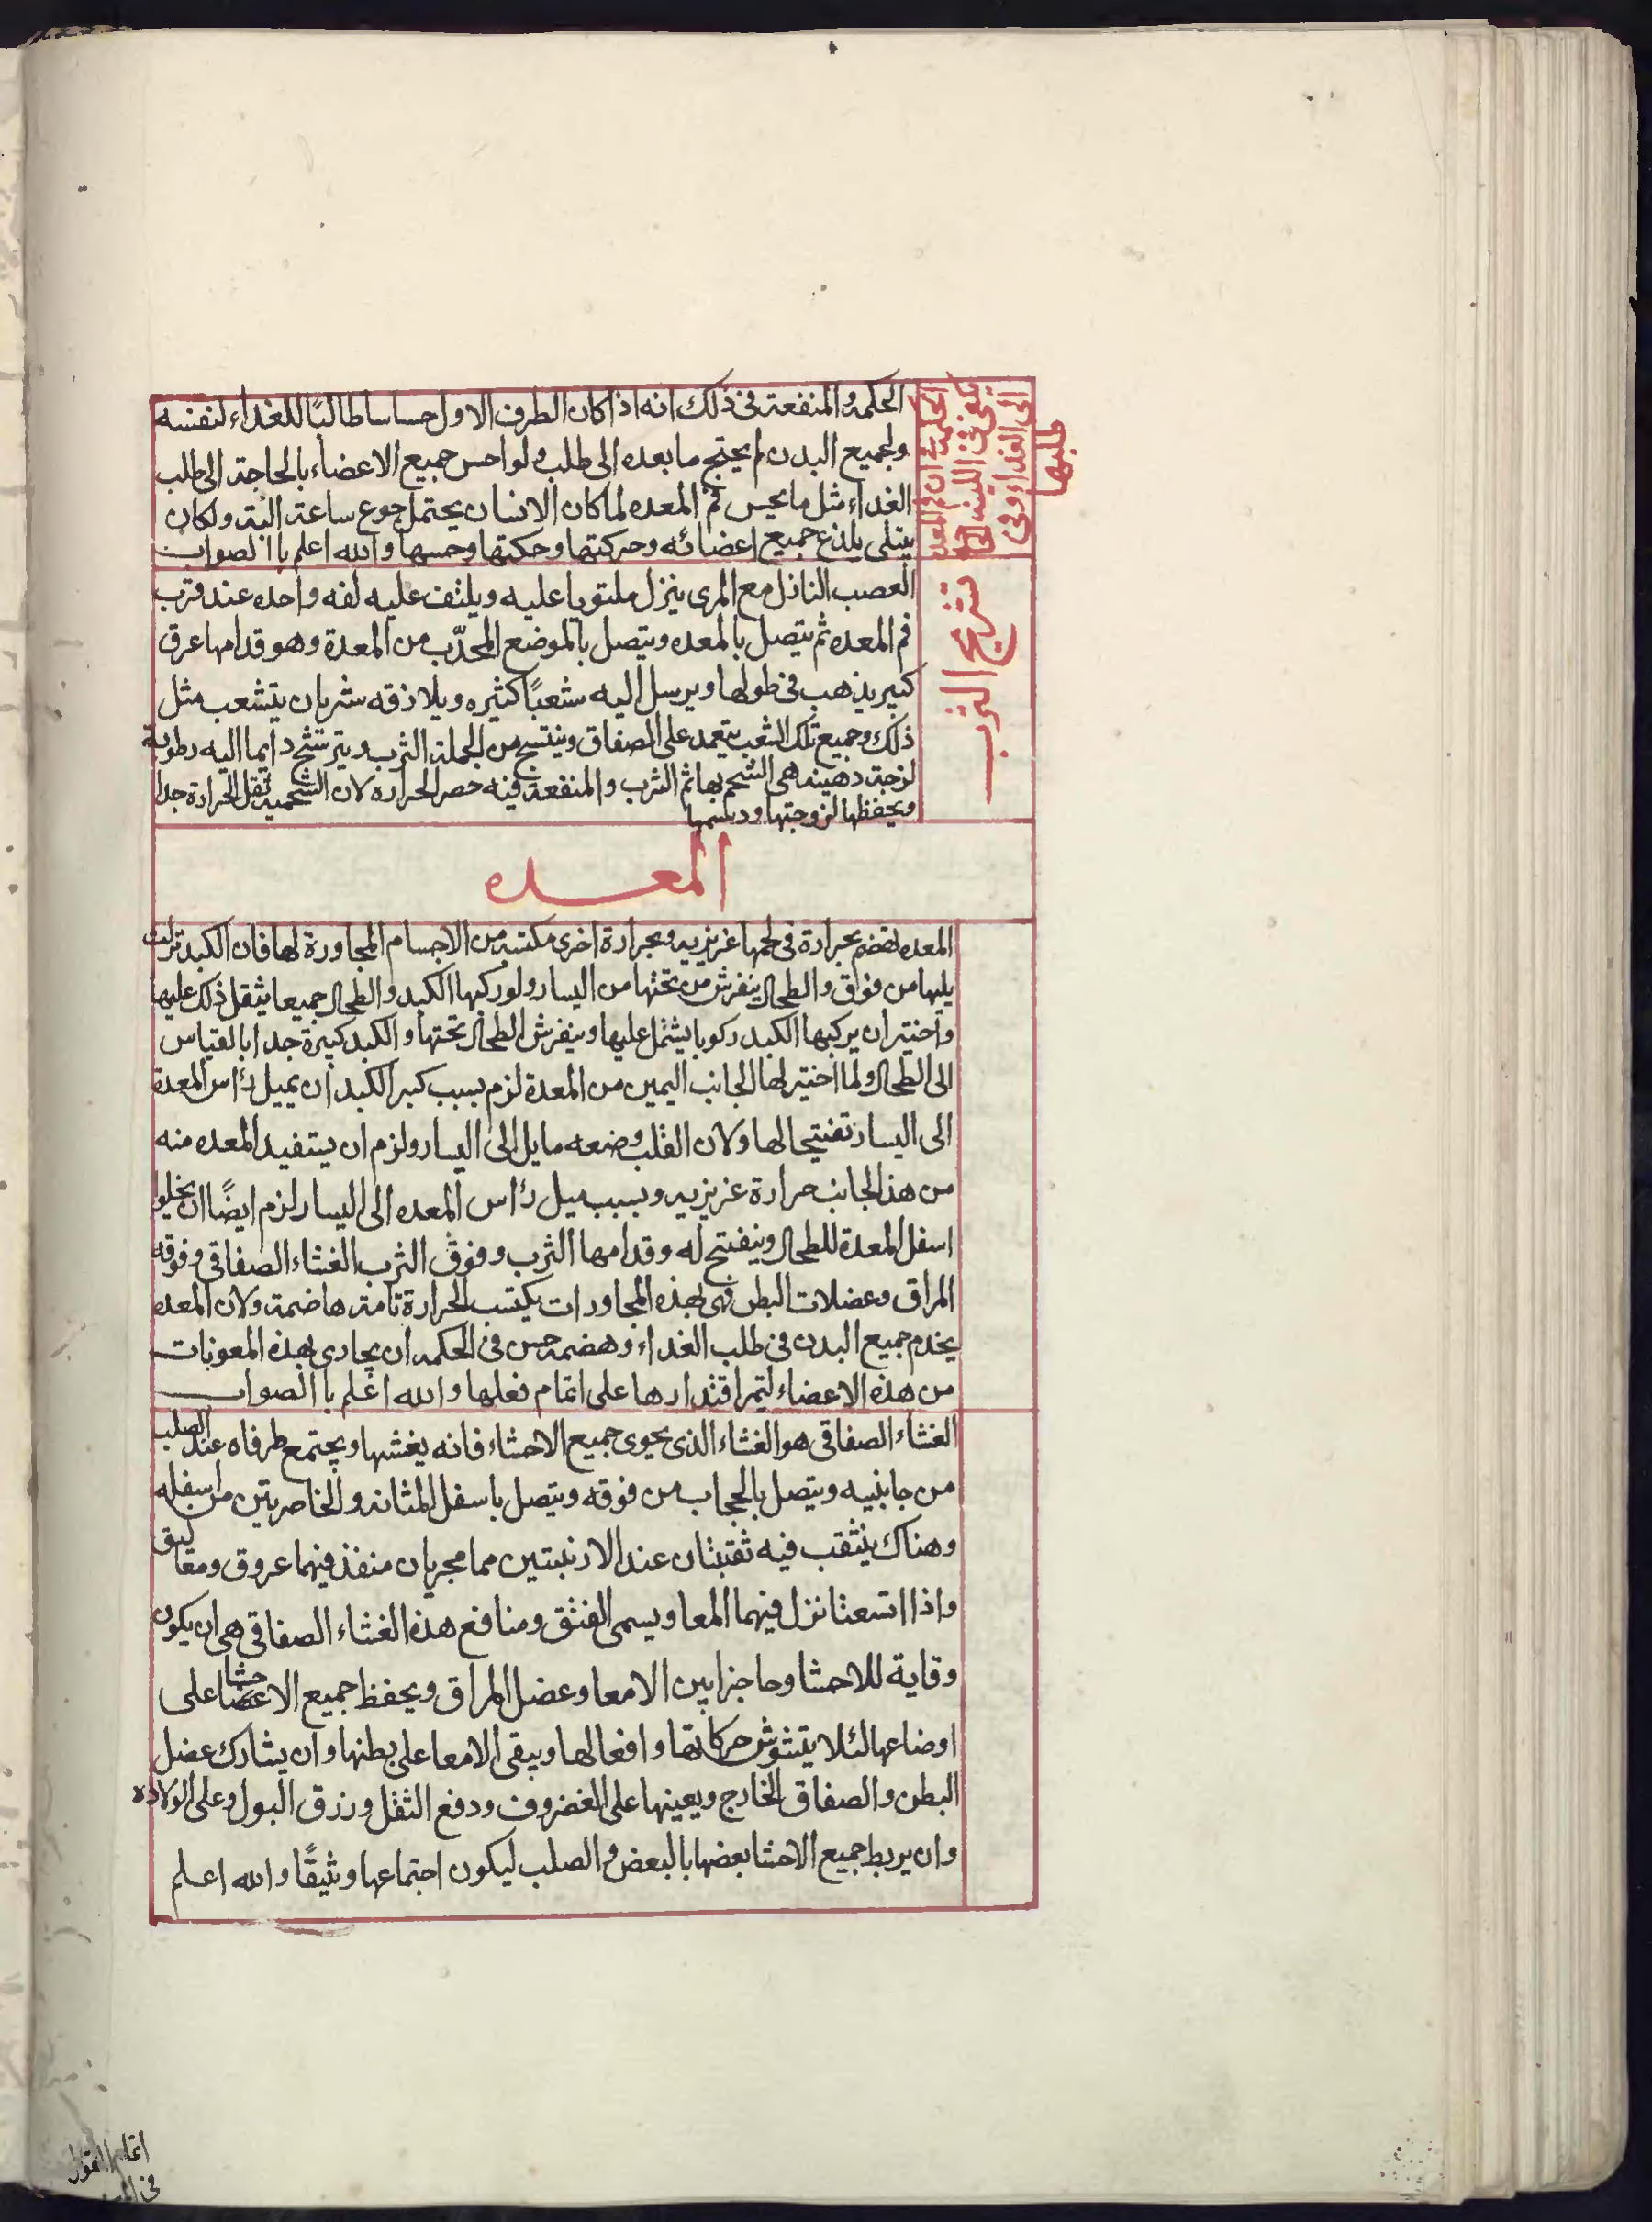 الحكمة في ان فم المعدة
الى الغداء وفى
طلبها
الحكمه والمنفعة فى ذلك انه اذا كان الطرف الاول حساسا طالبًا للغداء لنفسه
ولجميع البدن لم يحتج ما بعده الى طلب ولو احس جميع الاعضاء بالحاجة الى طلب
الغداء مثل ما يحس فم المعده لما كان الانسان يحتمل جوع ساعة البتة ولكان
يبتلى بلذع جميع اعضائه وحركتها وحكتها وحسها والله اعلم باالصواب
تشريح الثرب
العصب النازل مع المرى ينزل ملتويا عليه ويلتف عليه لفه واحده عند قرب
فم المعده ثم يتصل بالمعده ويتصل بالموضع المحدّب من المعدة وهو قدامها عرق
كبير يذهب فى طولها ويرسل اليه شعبًا كثيره ويلازقه شريان يتشعب مثل
ذلك وجميع تلك الشعب يتعمد على الصفاق وينتسج من الجملة الثرب ويترشح دايما اليه رطوبة
لزجة دهينه هى الشحم بها ثم الثرب والمنفعة فيه حصر الحراره لان الشحمية تقل الحرارة جدا
ويحفظها لزوجتها ودسمها
المعده
المعده تهضم بحرارة فى لحمها غريزيه وبحرارة اخرى مكتسبه من الاجسام المجاورة لها فان الكبد تركت
يليها من فوق والطحال ينفرش من تحتها من اليسار ولو ركبها الكبد والطحال جميعا يثقل ذلك عليها
واختير ان يركبها الكبد ركوبا يشتمل عليها وينفرش الطحال تحتها والكبد كبيرة جدا بالقياس
الى الطحال ولما اختير لها الجانب اليمين من المعدة لزم بسبب كبر الكبد ان يميل رأس المعدة
الى اليسار تفتيحا لها ولان القلب وضعه مايل الى اليسار ولزم ان يستفيد المعده منه
من هذ الجانب حرارة غريزيه وبسبب ميل رأس المعده الى اليسار لزم ايضًا ان يخلوا
اسفل المعدة للطحال وينفتح له وقدامها الثرب وفوق الثرب الغشاء الصفاقى وفوقه
المراق وعضلات البطن فهى لهذه المجاورات يكتسب الحرارة تامة هاضمة ولان المعده
يخدم جميع البدن فى طلب الغداء وهضمه حسن فى الحكمه ان يجارى بهذه المعونات
من هذه الاعضاء ليتمر اقتدارها على اتمام فعلها والله اعلم باالصواب
الغشاء الصفاقى هو الغشاء الذى يحوى جميع الاحشاء فانه يغشيها ويجتمع طرفاه عند الصلب
من جانبيه ويتصل بالحجاب من فوقه ويتصل باسفل المثانه والخاصرتين من اسفله
وهناك يتثقب فيه ثقبتان عند الارنبتين مما مجريان منفذ فيهما عروق ومعاليق
واذا اتسعتا نزل فيهما المعا ويسمى الفتق ومنافع هذه الغشاء الصفاقى هى ان يكون
وقاية للاحشا وحاجزا بين الامعا وعضل المراق ويحفظ جميع الاحشا على
اوضاعها لئلا يتشوش حركاتها وافعالها ويبقى الامعا على بطنها وان يشارك عضل
البطن والصفاق الخارج ويعينها على الغضروف ودفع الثقل وزرق البول وعلى الولاده
وان يربط جميع الاحشا بعضها بالبعض والصلب ليكون اجتماعها وثيقًا والله اعلم